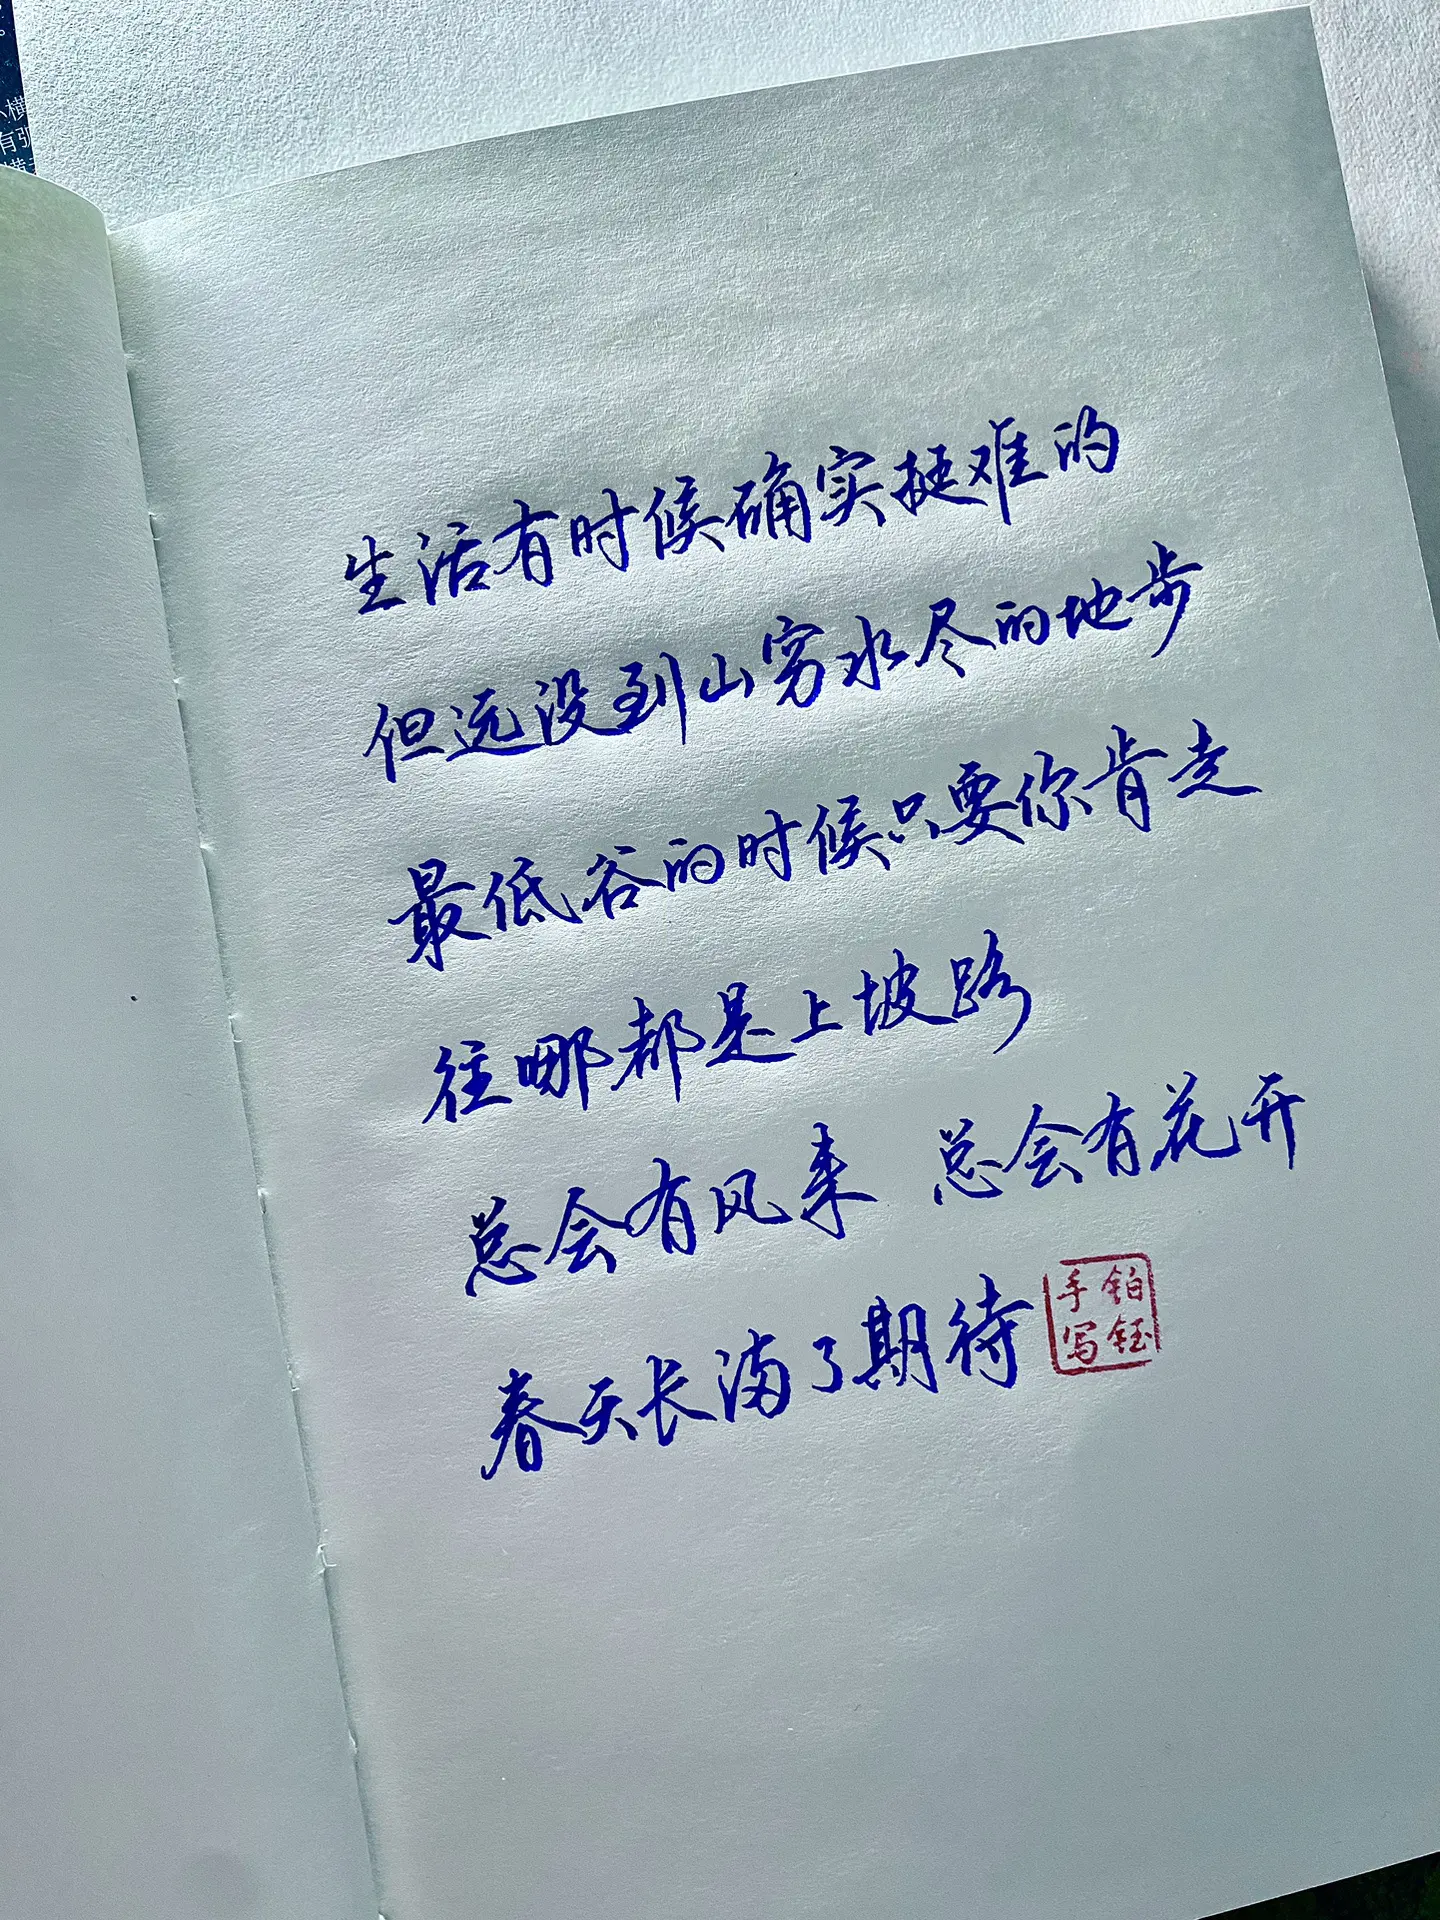 生活有时候确实挺难的
但远没到山穷水尽的地步
最低谷的时候只要你肯走
往哪都是上坡路
总会有风来 总会有花开
春天长满了期待
铂钰
手写